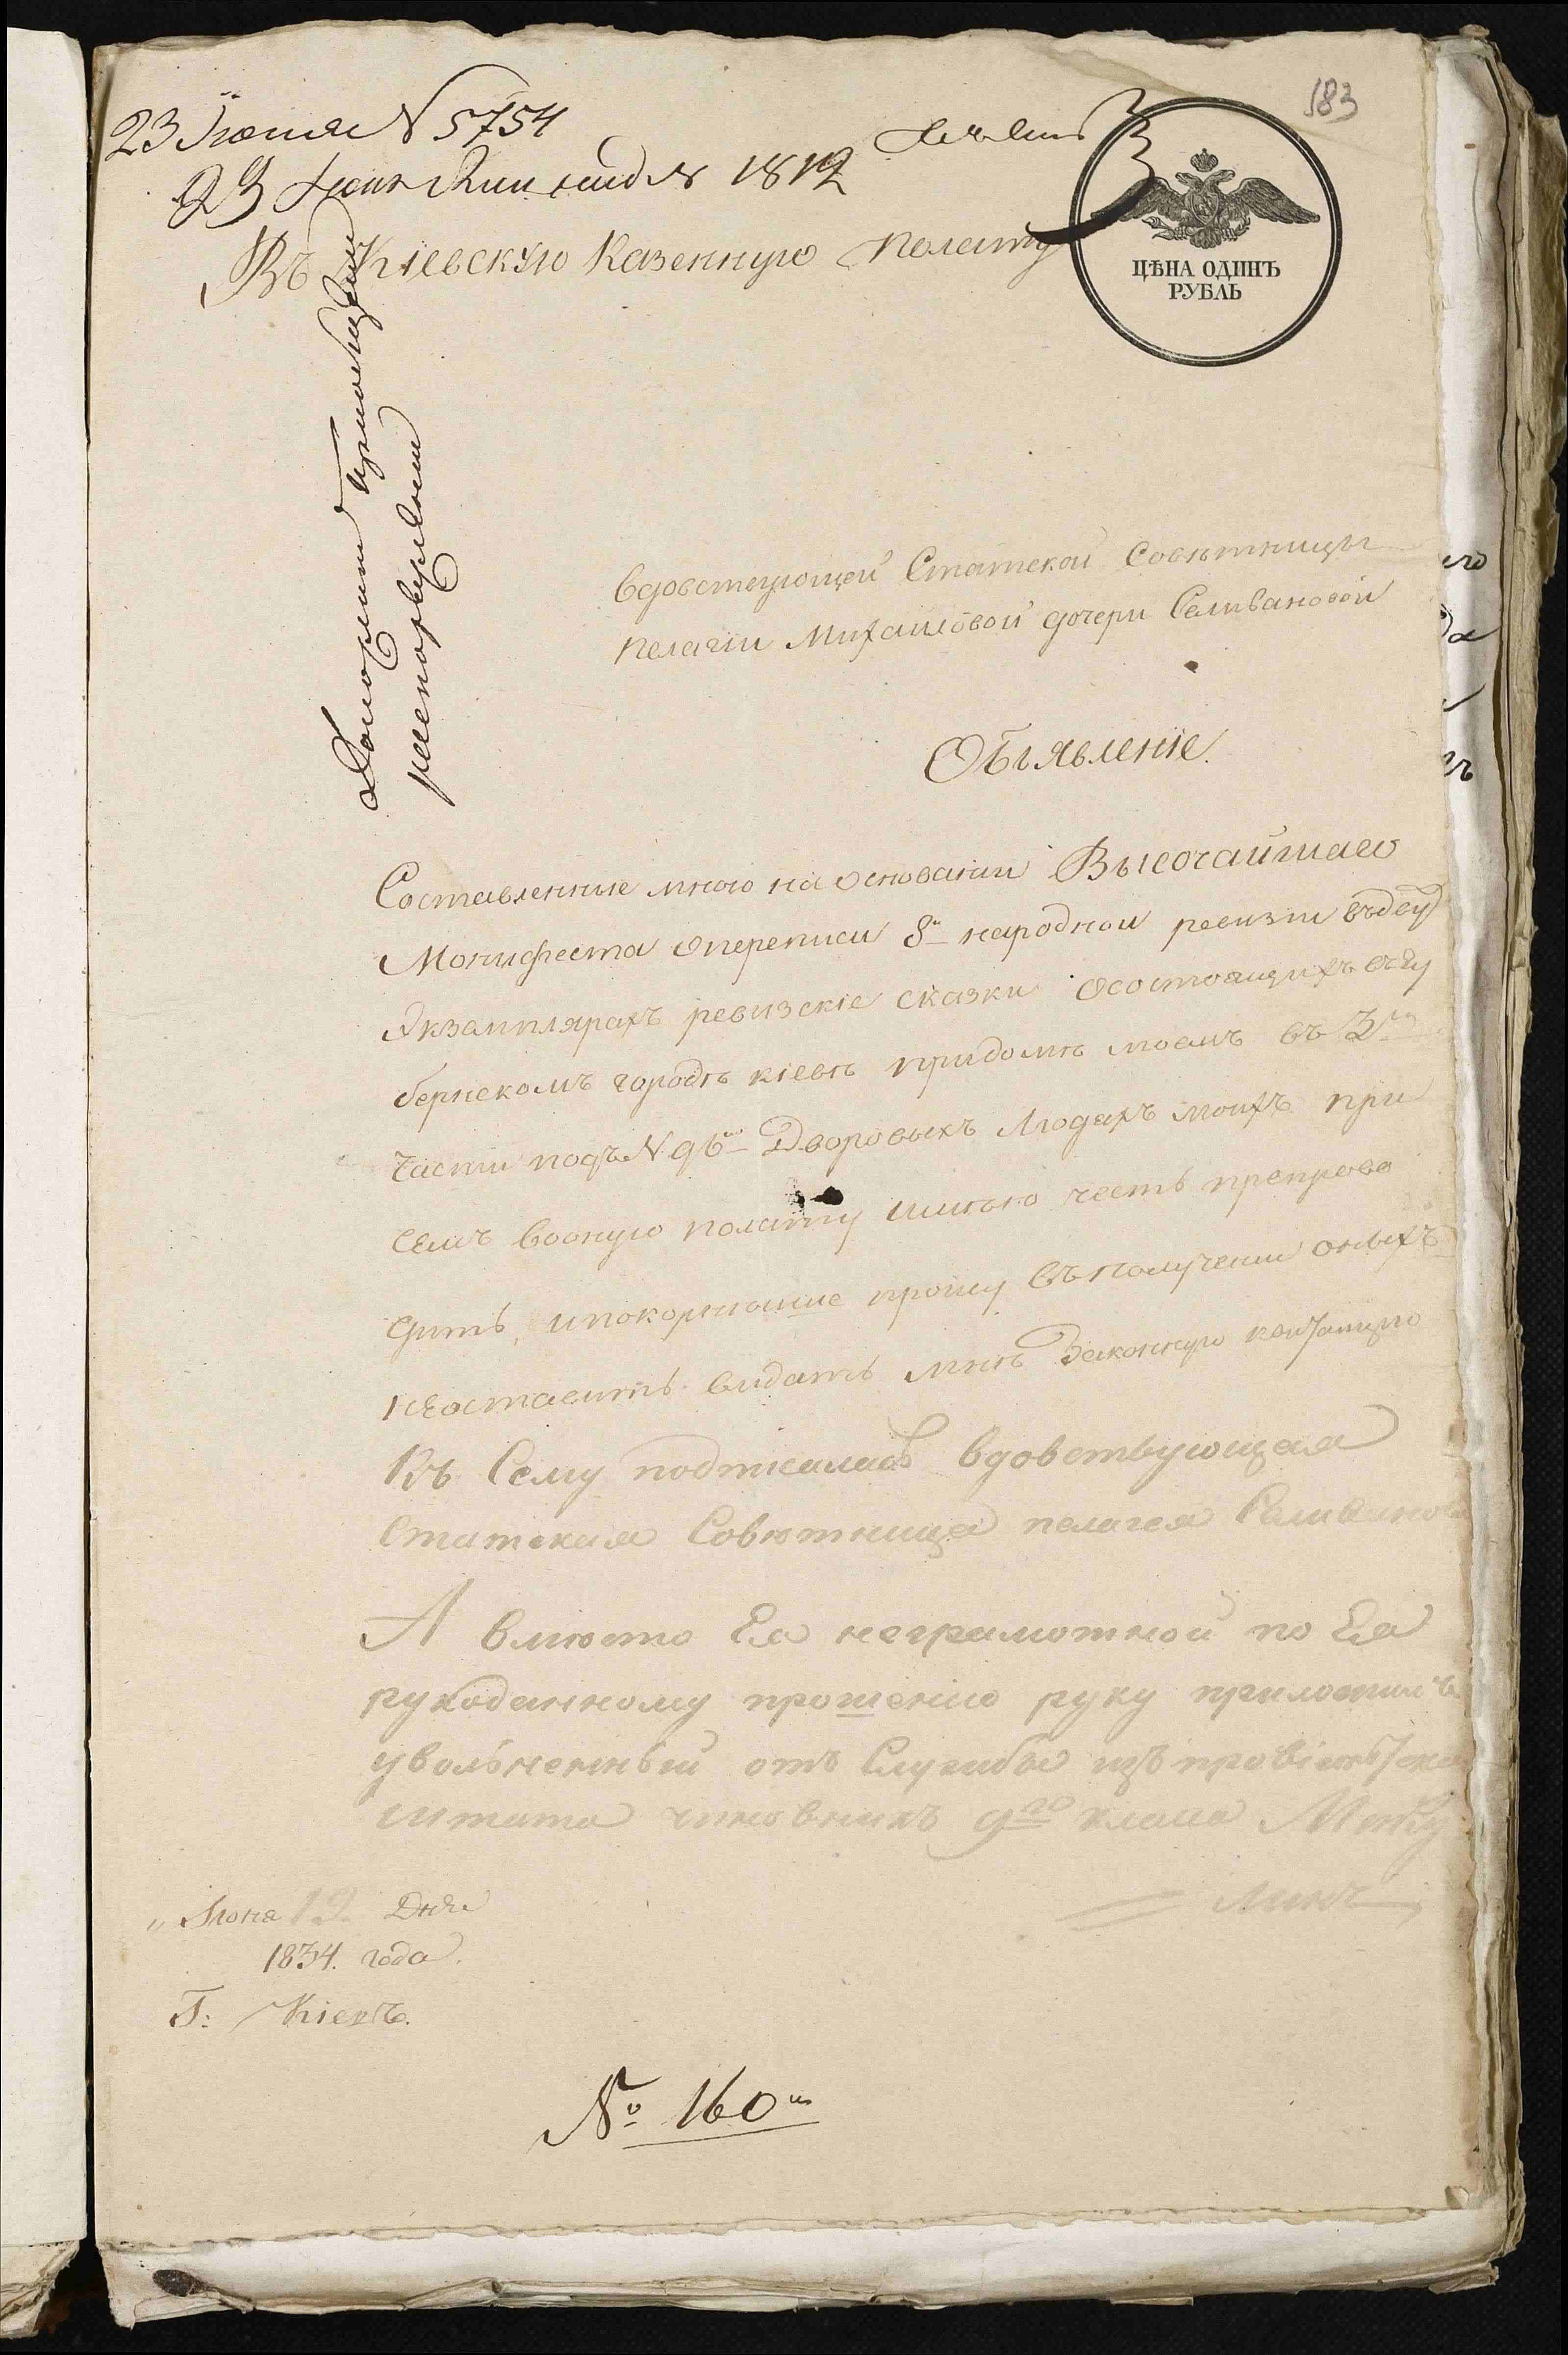 183
23 Июня № 5754
23 1812
Въ Кіевскую Казенную Полату
ЦѢНА ОДИНЪ
РУБЛЬ
вдовствующей Статской Совѣтницы
Пелагіи Михаиловой дочери Селивановой
Объявленіе.
Составленные мною на основаніи Высочайшаго
Монифеста опереписи 8й народной ревизіи въ дву
Экземплярахъ ревизскіе сказки осостоящихъ въ гу
бернскомъ городѣ кіевѣ придомѣ моемъ въ 3й
части подъ № 96мъ Дворовыхъ Людяхъ моихъ при
семъ вооную полату имѣю честь препрово
дить, ипокорнѣише прошу въ получении оныхъ
неоставить видать мнѣ Законную квитанцию
Къ Сему подписалась вдовствующая
Статская Совѣтница пелагея Селиванова
А вмѣсто Ея неграмотной по Ея
рукоданному прошенію руку приложилъ
уволненный отъ Службы изъ
штата чиновникъ 9го класа
Июня 12 Дня
1834. года.
Г: Кіевъ.
№ 160й